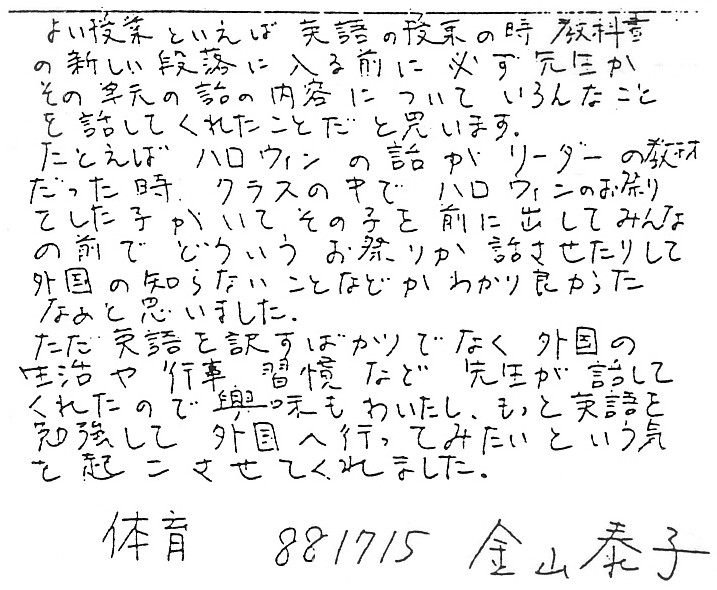 よい授業といえば 英語の授業の時 教科書
の新しい段落に入る前に 必ず先生が
その単元の話の内容について いろんなこと
を話してくれたことだと思います.
たとえば ハロウィンの話が リーダーの教材
だった時 クラスの中で ハロウィンのお祭り
てした子がいて その子を前に出してみんな
の前で どういうお祭りか 話させたりして
外国の知らないことなどがわかり良かった
なぁと思いました.
ただ英語を訳すばかりでなく 外国の
生活や 行事 習慣など 先生が話して
くれたので興味もわいたし、もっと英語を
勉強して 外国へ行ってみたいという気
を起こさせてくれました.
体育 881715 金山泰子